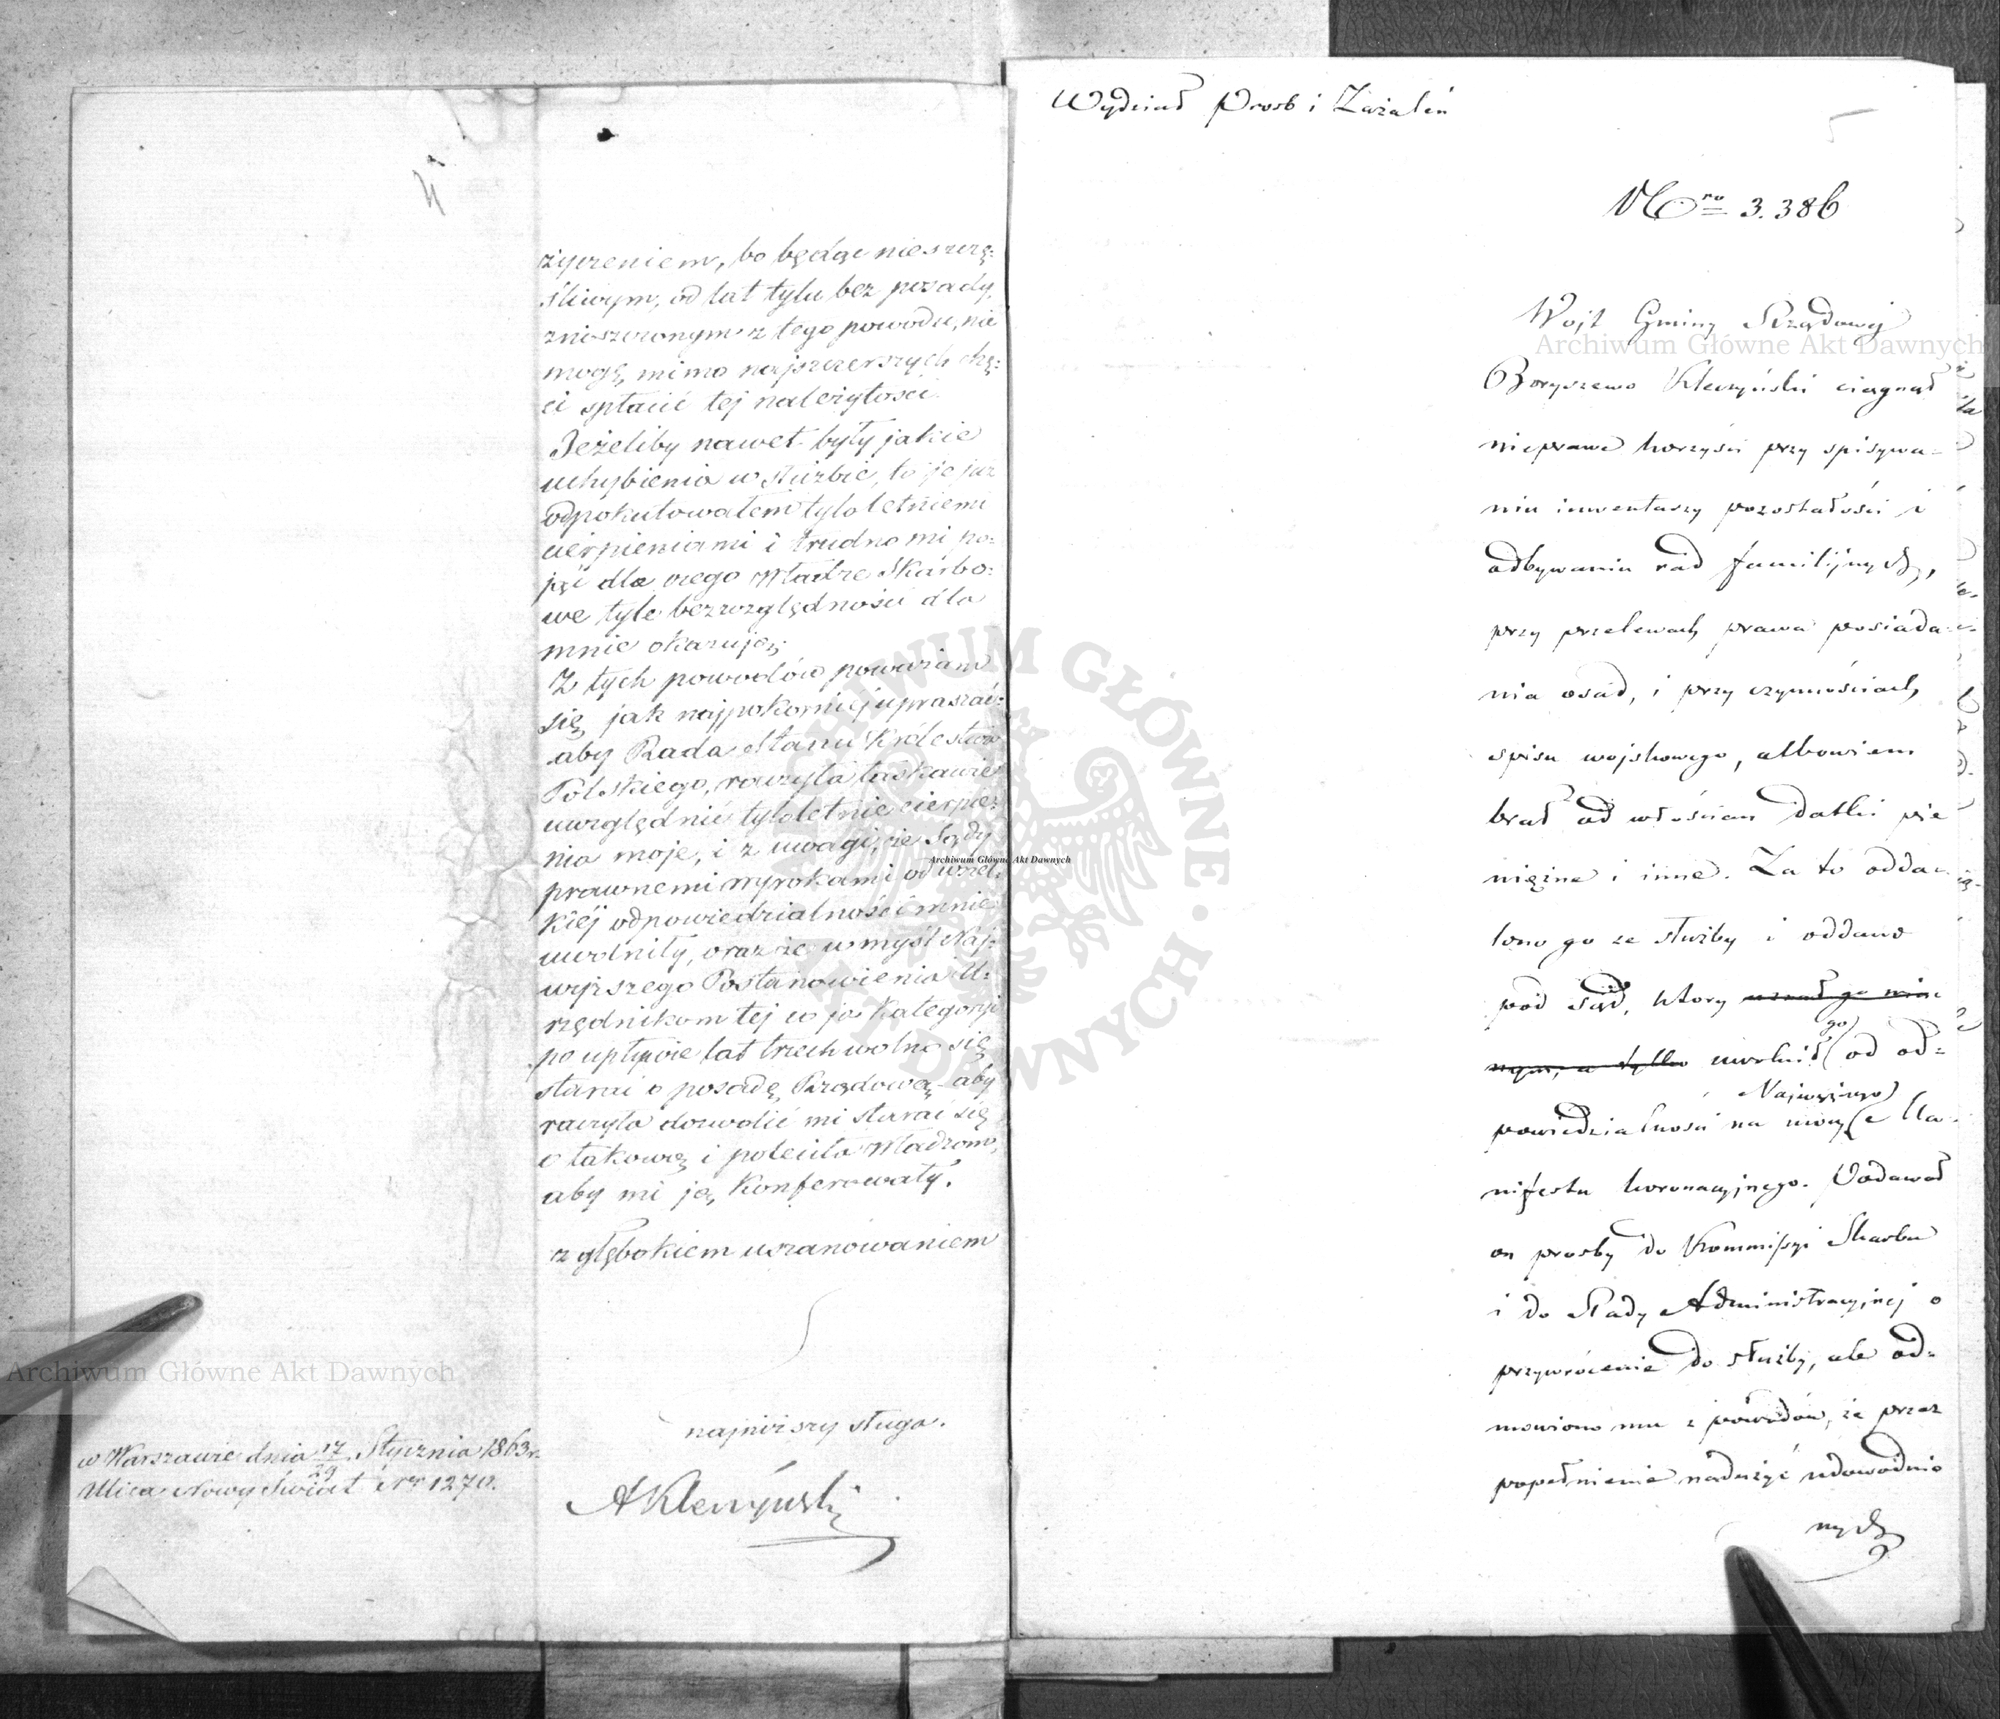 4
życzeniem, bo będąc nieszczę:
śliwym, od lat tylu bez posady,
zniszczonym z tego powodu, nie
mogę, mimo najszczerszych chę:
ci spłacić tej należytości.
Jeżeliby nawet były jakie
uchybienia w służbie, to je już
odpokutowałem tyloletniemi
cierpieniami i trudno mi po:
jąć dla czego Władze Skarbo:
we tyle bezwzględności dla
mnie okazują.
Z tych powodów poważam
się, jak najpokorniej upraszać:
aby Rada Stanu Królestwa
Polskiego, raczyła łaskawie
uwzględnić tyloletnie cierpie:
nia moje, i z uwagi, że Sądy
prawnemi wyrokami od wszel:
kiéj odpowiedzialności mnie
uwolniły, oraz że w myśl Naj:
wyższego Postanowienia U:
rzędnikom tej co ja Kategoryi
po upływie lat trzech wolno się
starać o posadę Rządową aby
raczyła dozwolić mi starać się
o takową i poleciła Władzom,
aby mi ją Konferowały.
z głębokiem uszanowaniem
najniższy sługa.
w Warszawie dnia 17/29 Stycznia 1863 r.
Ulica Nowy Świat Nr 1270.
AKleczyński
Wydział Prosb i Zażaleń
5
Nro 3.386
Wojt Gminy Rządowej
Boryszewo Kleczyński ciągnął
nieprawe korzyści przy spisywa-
niu inwentarzy pozostałości i
odbywaniu rad familijnych,
przy przelewach prawa posiada-
nia osad, i przy czynnościach
spisu wojskowego, albowiem
brał od włościan datki pie
niężne i inne. Za to odda-
lono go ze służby i oddano
pod sąd, ktory uznał go win
nym, a tylko uwolnił go od od=
Najwyższego
powiedzialności na mocy Ma-
nifestu koronacyjnego. Podawał
on prosby do Kommissyi Skarbu
i do Rady Administracyjnej o
przywrócenie do służby, ale od=
mowiono mu z powodów, że przez
popełnienie nadużyć udowodnio
nych
Archiwum Główne Akt Dawnych
Archiwum Główne Akt Dawnych
Archiwum Główne Akt Dawnych
ARCHIWUM GŁÓWNE AKT DAWNYCH